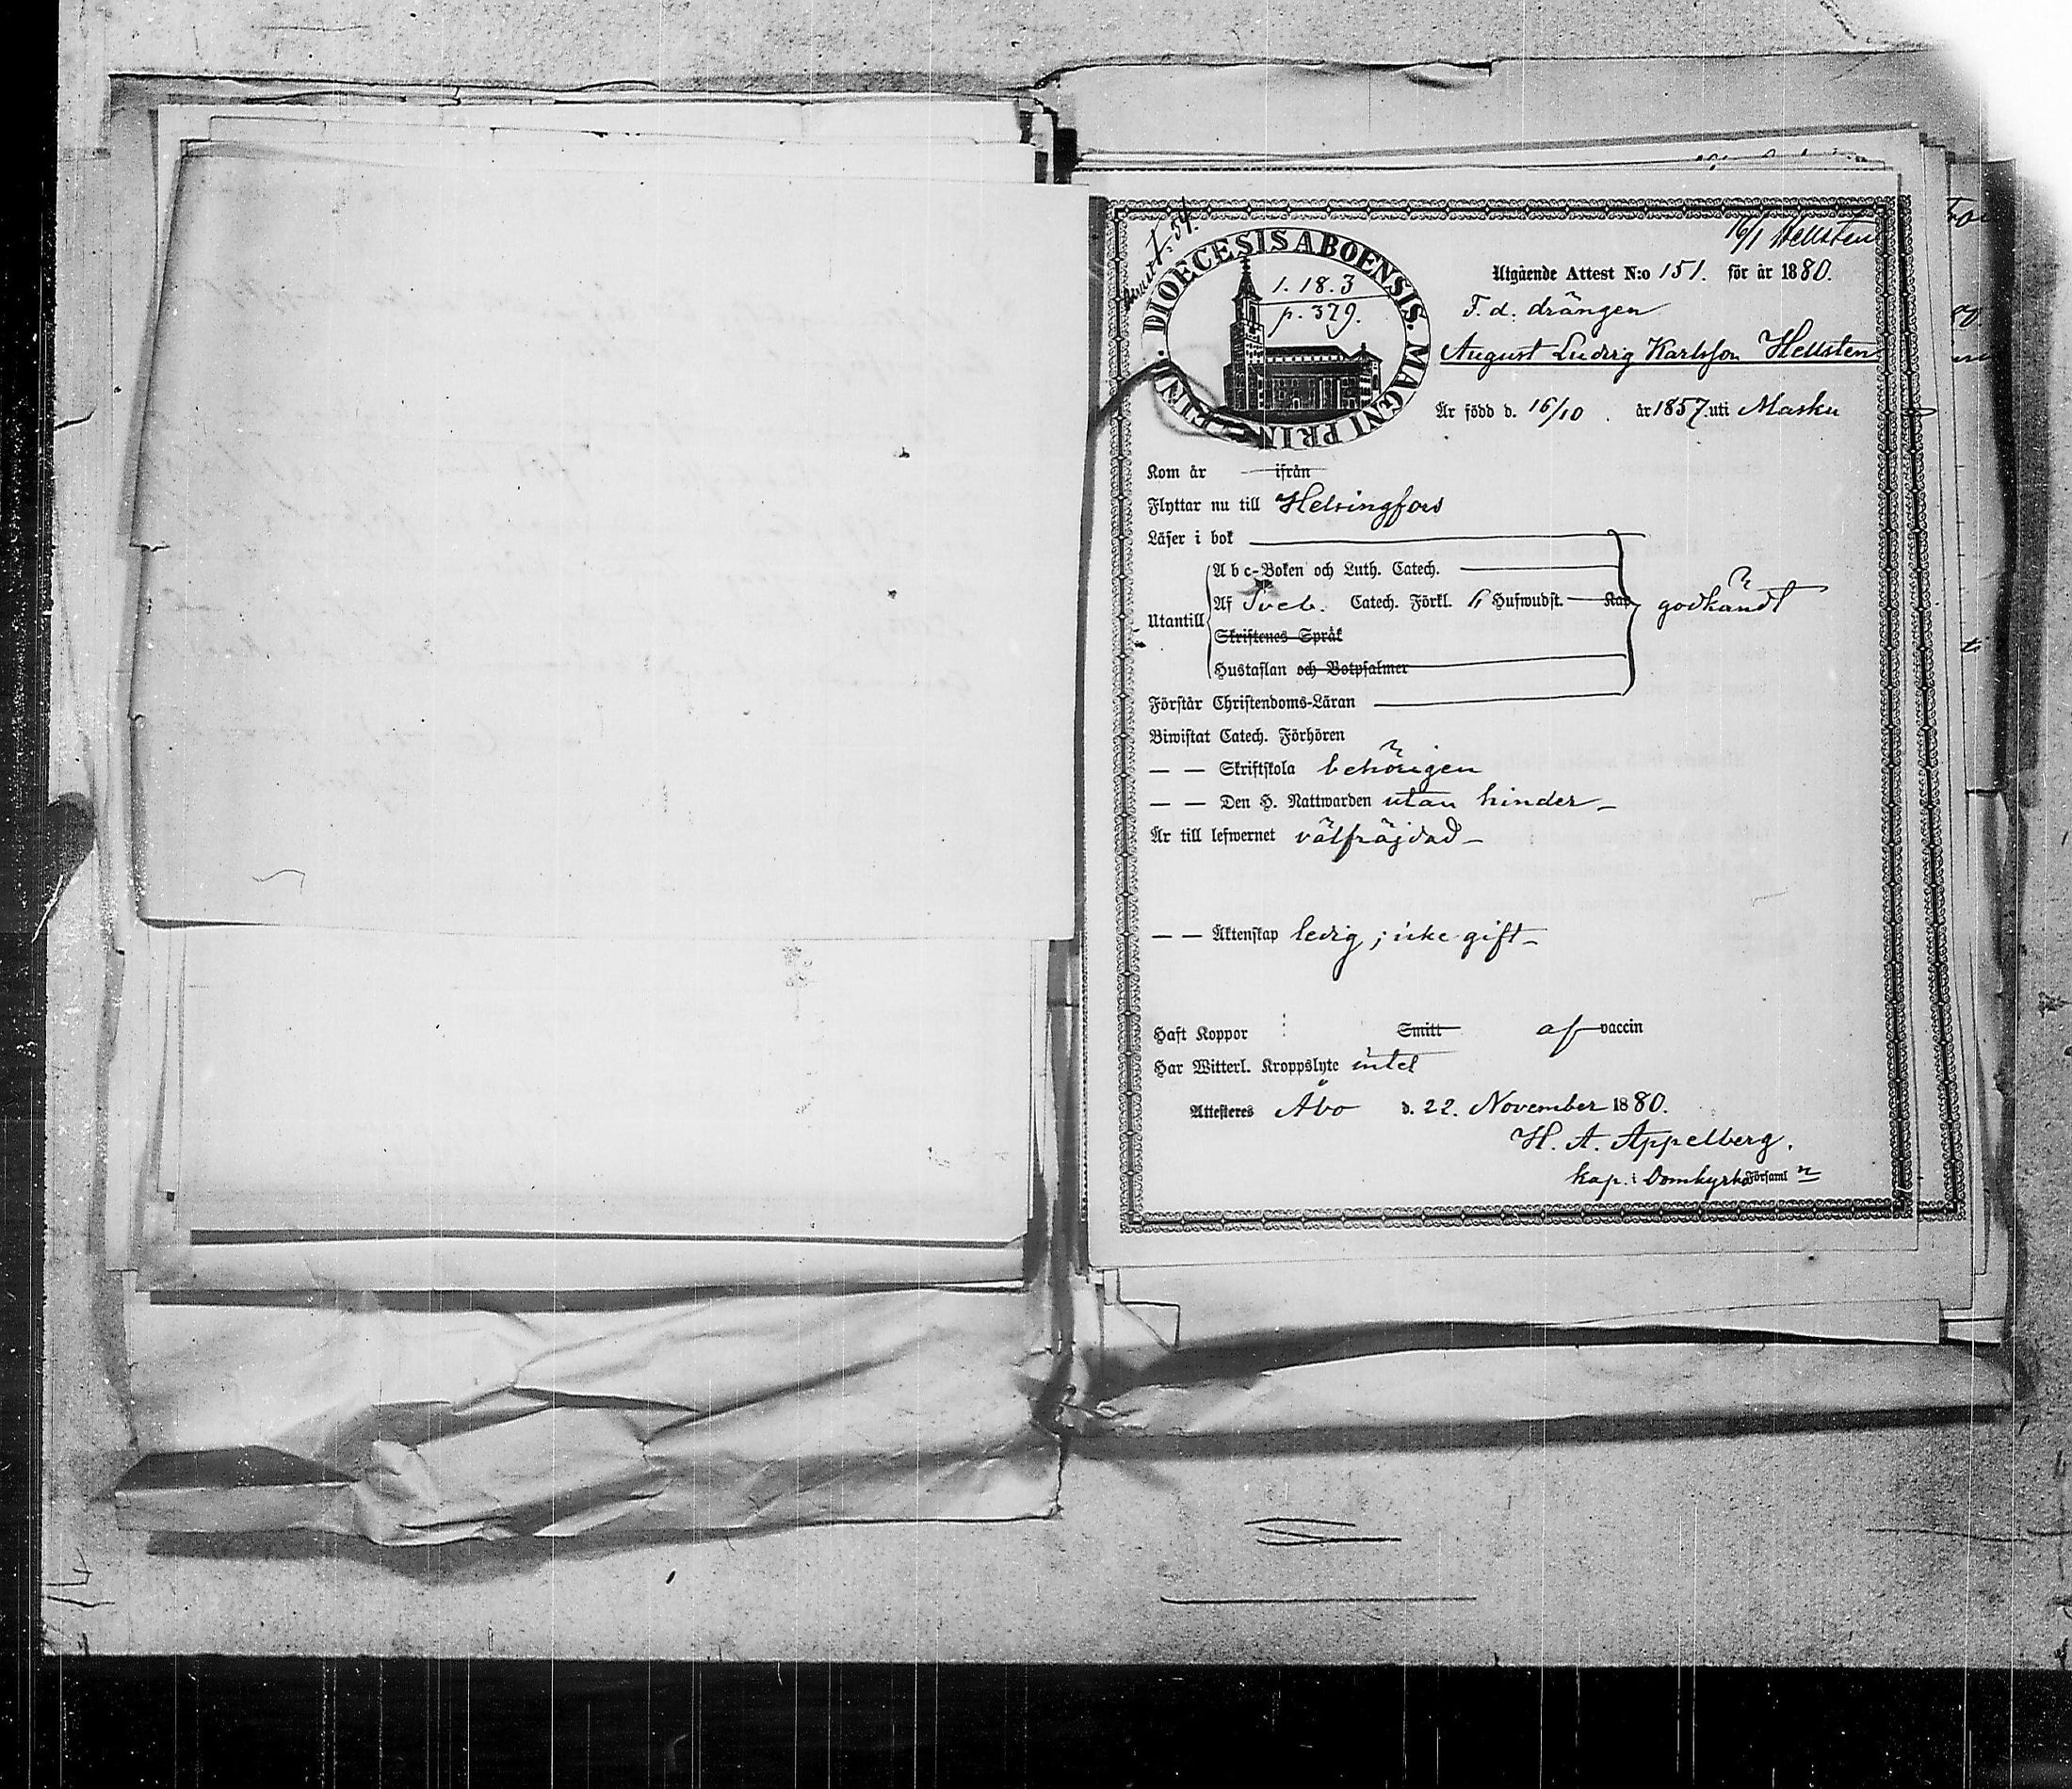 16/1 Hellsten
DIOECESIS ABOENSIS. MAGNI PRIN. FIN.
1. 18. 3
p. 379.
Utgående Attest N:o 151. för år 1880.
F. d. drängen
August Ludvig Karlsson Hellsten
Är född d. 16/10. år 1857. uti Masku
Kom år — ifrån
Flyttar nu till Helsingfors
Läser i bok
Abc-Boken och Luth. Catech.
Utantill Af Sveb. Catech. Förkl. 6 Hufwudst. — Kap. godkändt
Skriftenes Språk
Hustaflan och Botpsalmer
Förstår Christendoms-Läran
Biwistat Catech. Förhören
— — Skriftskola behörigen
— — Den H. Nattwarden utan hinder —
Är till lefwernet välfräjdad —
— — Äktenskap ledig; icke gift —
Haft Koppor Smitt af vaccin
Har Witterl. Kroppslyte intet
Attesteras Åbo d. 22. November 1880.
H. A. Appelberg.
kap. i Domkyrko Församl n